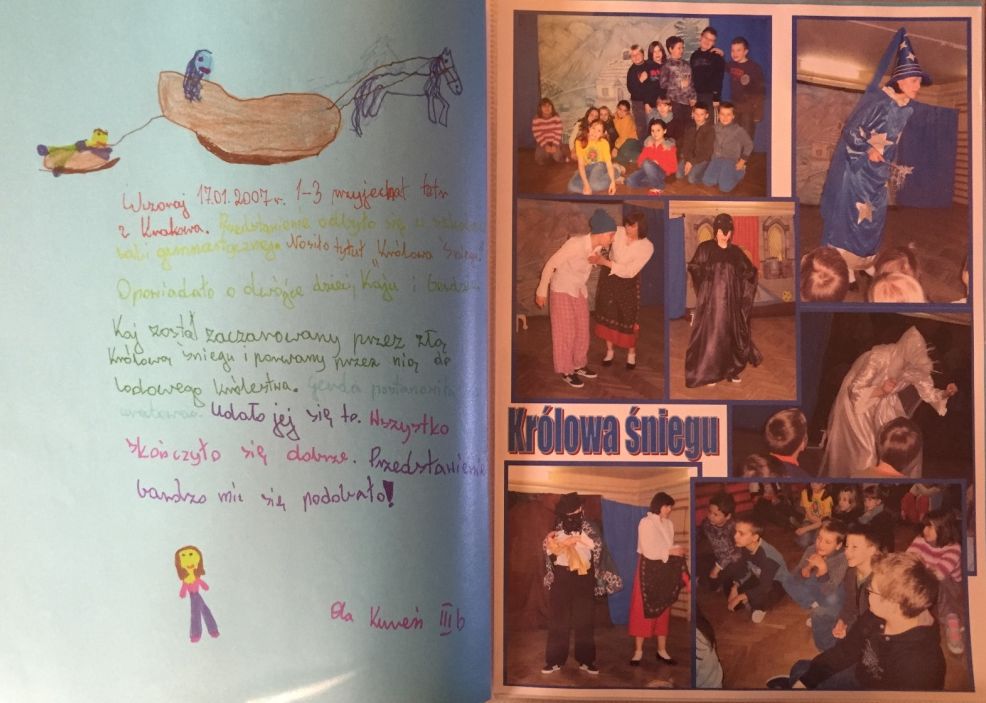 Wczoraj 17.01.2007 r. 1-3 przyjechał teatr
z Krakowa. Przedstawienie odbyło się w
sali gimnastycznej. Nosiło tytuł „Królowa Śniegu"
Opowiadało o dwójce dzieci, Kaju i Gerdzie.
Kaj został zaczarowany przez złą
Królową śniegu i porwany przez nią do
lodowego królestwa. Gerda postanowiła
uratować. Udało jej się to. Wszystko
skończyło się dobrze. Przedstawienie
bardzo mi się podobało!
Ola III b
Królowa śniegu